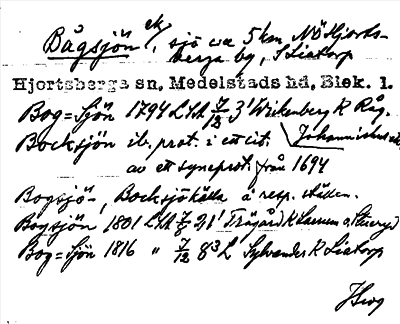 Bågsjön ek/, sjö ca 5 km NÖ Hjorts-
berga by, S Listorp
Hjortsberga sn, Medelstads hd, Blek. l.
Bog=Sjön 1794 LSA 7/12 3' Wikenberg K Råg.
Bocksjön ib. prot. i ett cit. \ Johannishus
av ett syneprot. från 1694
Bogsjö-, Bocksjökälla å resp. ställen.
Bogsjön 1801 LSA 21' Trägård K
Bog=Sjön 1816 " 7/12 83 L Sylvander K Listorp